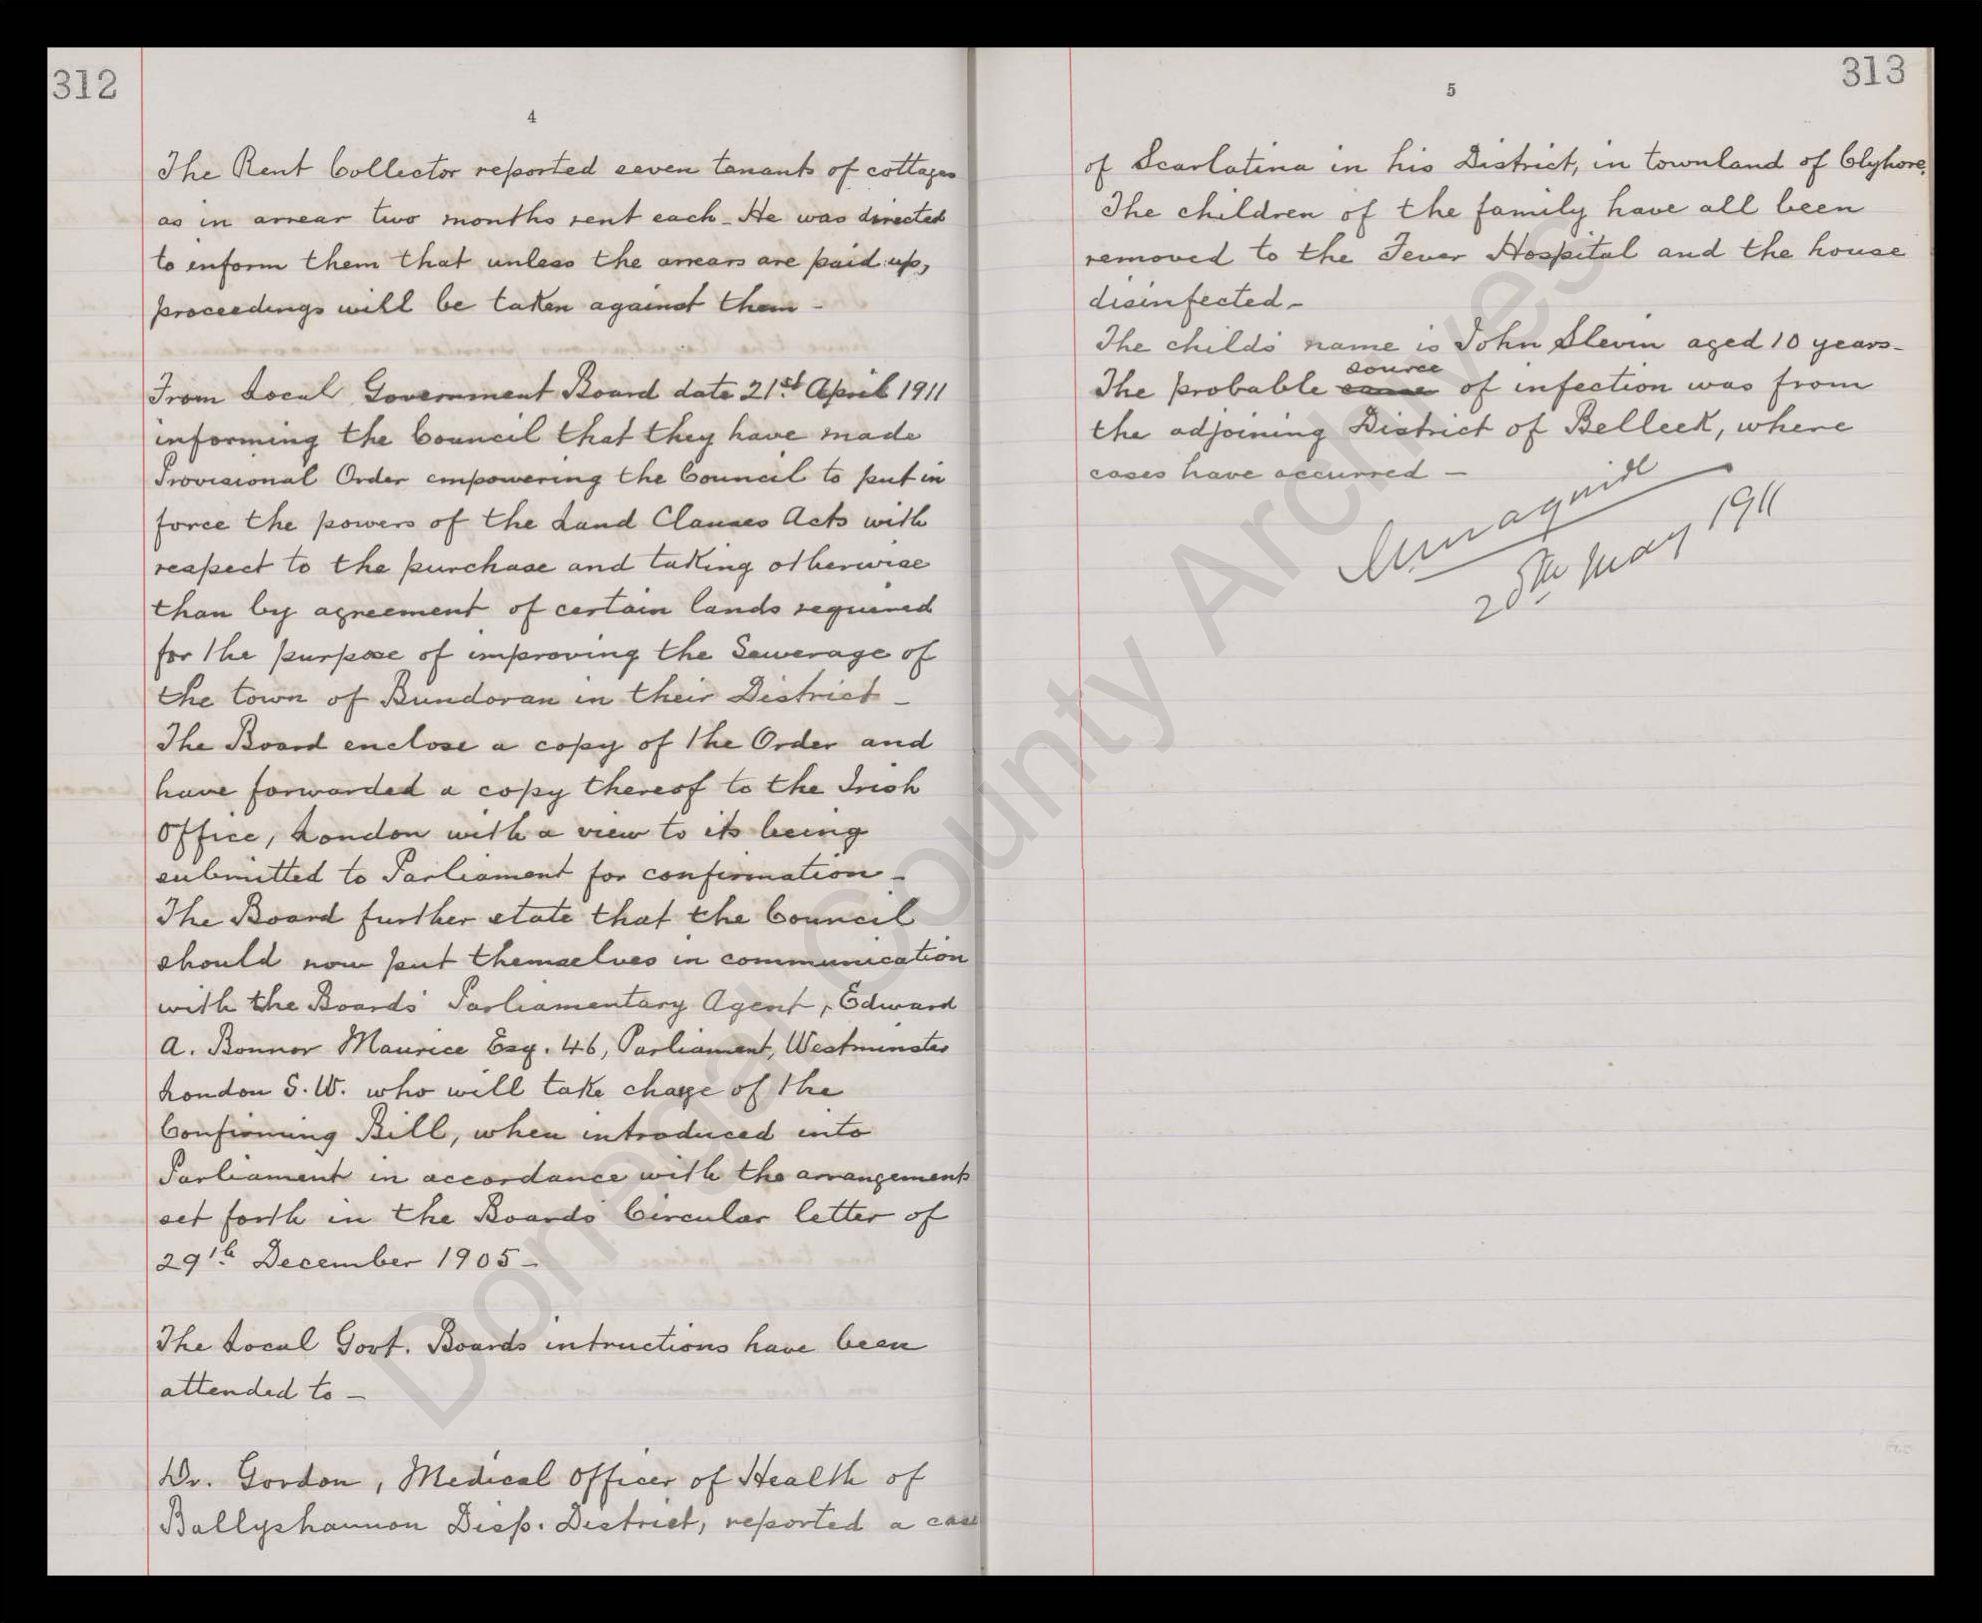 312
4
The Rent Collector reported seven tenants of cottages
as in arrear two months rent each - He was directed
to inform them that unless the arrears are paid up,
proceedings will be taken against them -
From Local Government Board date 21st April 1911
informing the Council that they have made
Provisional Order empowering the Council to put in
force the powers of the Land Clauses Acts with
respect to the purchase and taking otherwise
than by agreement of certain lands required
for the purpose of improving the Sewerage of
the town of Bundoran in their District -
The Board enclose a copy of the Order and
have forwarded a copy thereof to the Irish
Office, London with a view to its being
submitted to Parliament for confirmation -
The Board further state that the Council
should now put themselves in communication
with the Boards' Parliamentary Agent, Edward
A. Bonnor Maurice Esq. 46, Parliament, Westminster
London S.W. who will take charge of the
Confirming Bill, when introduced into
Parliament in accordance with the arrangements
set forth in the Boards' Circular letter of
29th December 1905 -
The Local Govt. Boards intructions have been
attended to -
Dr. Gordon, Medical Officer of Health of
Ballyshannon Disp. District, reported a case
313
5
of Scarlatina in his District, in townland of Clyhore,
The children of the family have all been
removed to the Fever Hospital and the house
disinfected -
The childs' name is John Slevin aged 10 years -
source
The probable of infection was from
the adjoining District of Belleek, where
cases have occurred -
20th May 1911
Donegal County Archives